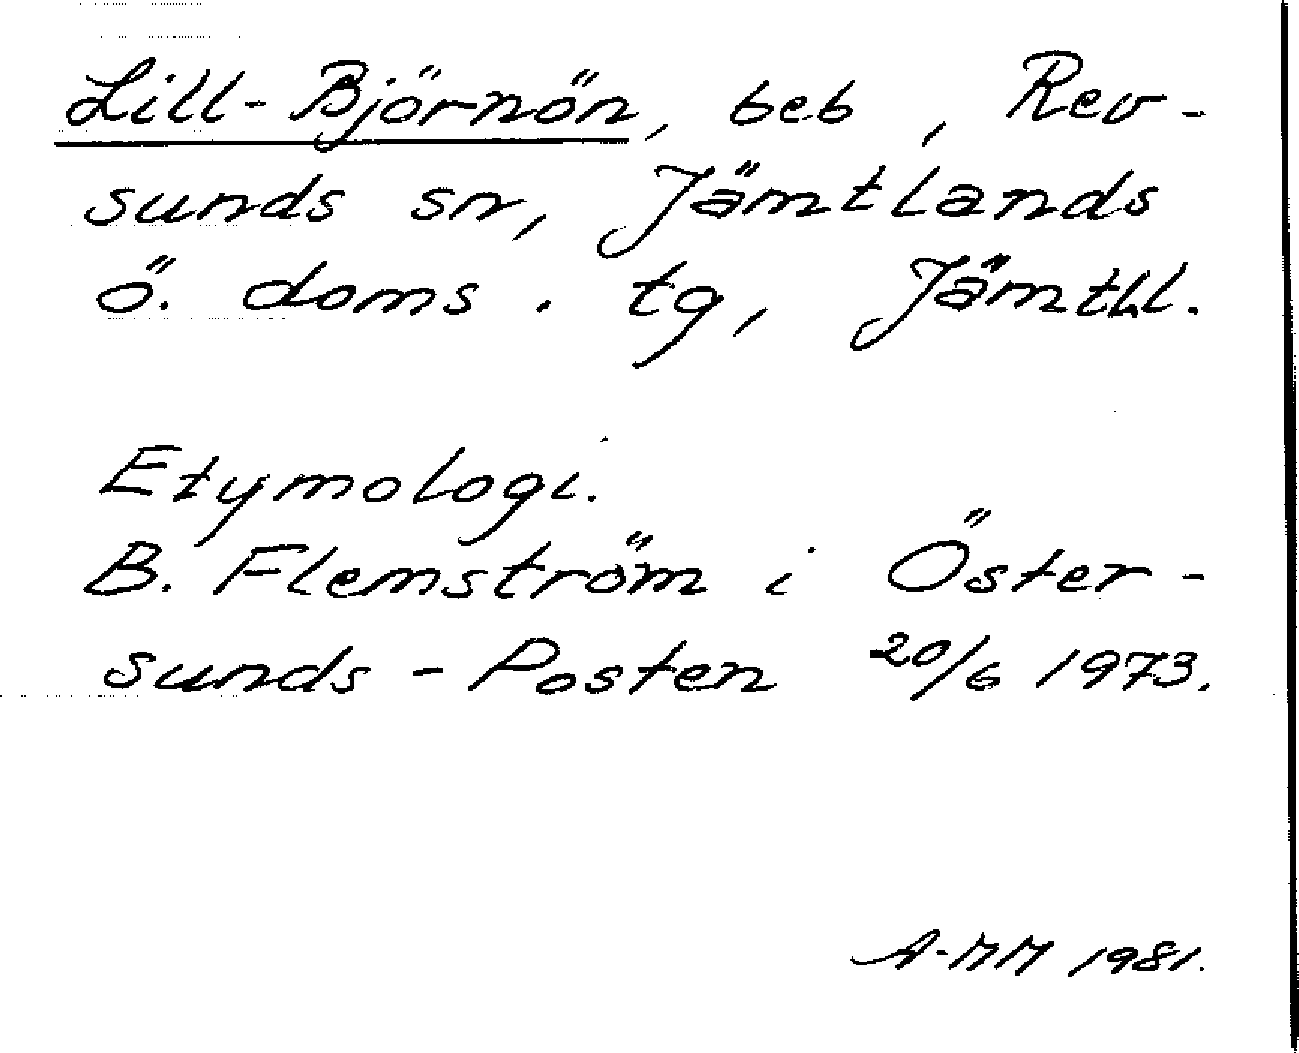 Lill-Björnön, beb, Rev-
sunds sn, Jämtlands
ö. doms. tg, Jämtl.
Etymologi.
B. Flemström i Öster-
sunds-Posten 20/6 1973.
A-MM 1981.